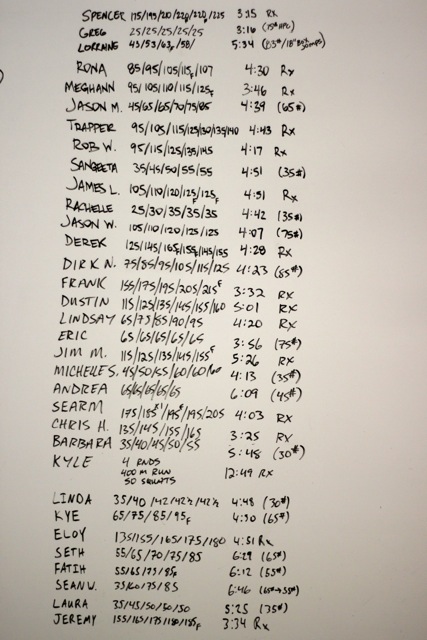 SPENCER 175/195/210/220F/220F/225 3:35 RX
GREG 25/25/25/25/25 3:16 (15# HPC)
LORRAINE 43/53/63F/58/ 5:34 (23#/18" BOX JUMPS)
RONA 85/95/105/115F/107 4:30 Rx
MEGHANN 95/105/110/115/125F 3:46 Rx
JASON M. 45/65/65/70/75/85 4:39 (65#)
TRAPPER 95/105/115/125/130/135/140 4:43 Rx
ROB W. 95/115/125/135/145 4:17 Rx
SANGEETA 35/45/50/55/55 4:51 (35#)
JAMES L. 105/110/120/125/125F 4:51 Rx
RACHELLE 25/30/35/35/35 4:42 (35#)
JASON W. 105/110/120/125/125 4:07 (75#)
DEREK 125/145/165F/155F/145/155 4:28 Rx
DIRK N. 75/85/95/105/115/125 4:23 (85#)
FRANK 155/175/195/205/215F 3:32 RX
DUSTIN 115/125/135/145/155/160 5:01 RX
LINDSAY 65/75/85/90/95 4:20 RX
ERIC 65/65/65/65/65 3:56 (75#)
JIM M. 115/125/135/145/155F 5:26 RX
MICHELLE S. 45/50/55/60/60/60 4:13 (35#)
ANDREA 65/65/65/65/65 6:09 (45#)
SEARM 175/185/195F/195/205 4:03 RX
CHRIS H. 135/145/155/165 3:25 RX
BARBARA 35/40/45/50/55 5:48 (30#)
KYLE 4 RNDS
400 M RUN 12:49 RX
50 SQUATS
LINDA 35/40/42/42½/42½ 4:48 (30#)
KYE 65/75/85/95F 4:50 (65#)
ELOY 135/155/165/175/180 4:51 Rx
SETH 55/65/70/75/85 6:29 (65#)
FATIH 55/65/75/85F 6:12 (55#)
SEAN W. 35/60/75/85 6:46 (65#→55#)
LAURA 35/45/50/50/50 5:25 (35#)
JEREMY 155/165/175/180/185F 3:34 Rx